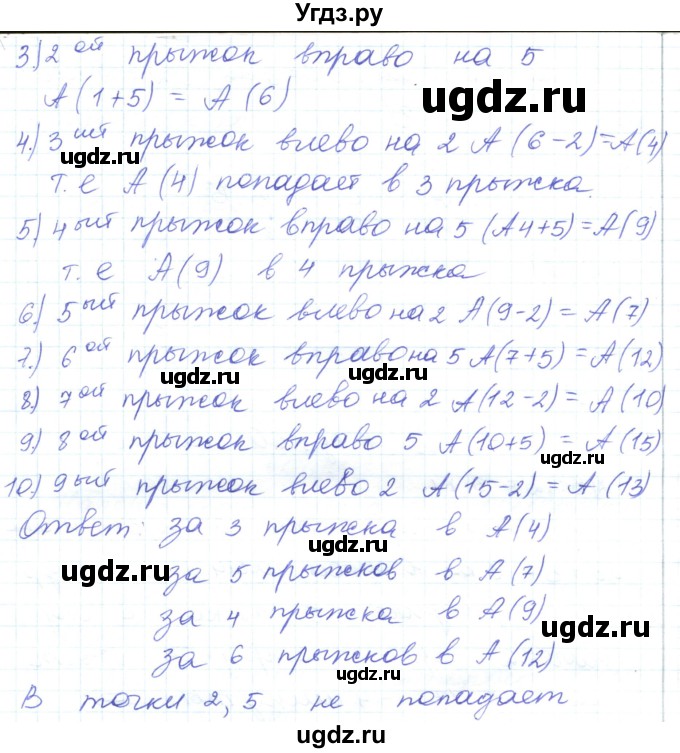 Угдз.ру
3) 2 ой прыжок вправо на 5
A(1+5) = A(6)
ugdz.ru
4.) 3 ий прыжок влево на 2 A(6-2)=A(4)
т.е A(4) попадает в 3 прыжка.
5) 4 ый прыжок вправо на 5 (A4+5)=A(9)
т.е A(9) в 4 прыжка
6.) 5 ый прыжок влево на 2 A(9-2) = A(7)
7.) 6 ой прыжок вправо на 5 A(7+5) = A(12)
ugdz.ru
ugdz.ru
8.) 7 ой прыжок влево на 2 A(12-2) = A(10)
9.) 8 ой прыжок вправо 5 A(10+5) = A(15)
ugdz.ru
10.) 9 ый прыжок влево 2 A(15-2) = A(13)
Ответ: за 3 прыжка в A(4)
ugdz.ru
ugdz.ru
за 5 прыжков в A(7)
за 4 прыжка в A(9)
ugdz.ru
за 6 прыжков в A(12)
ugdz.ru
В точки 2, 5 не попадает
ugdz.ru